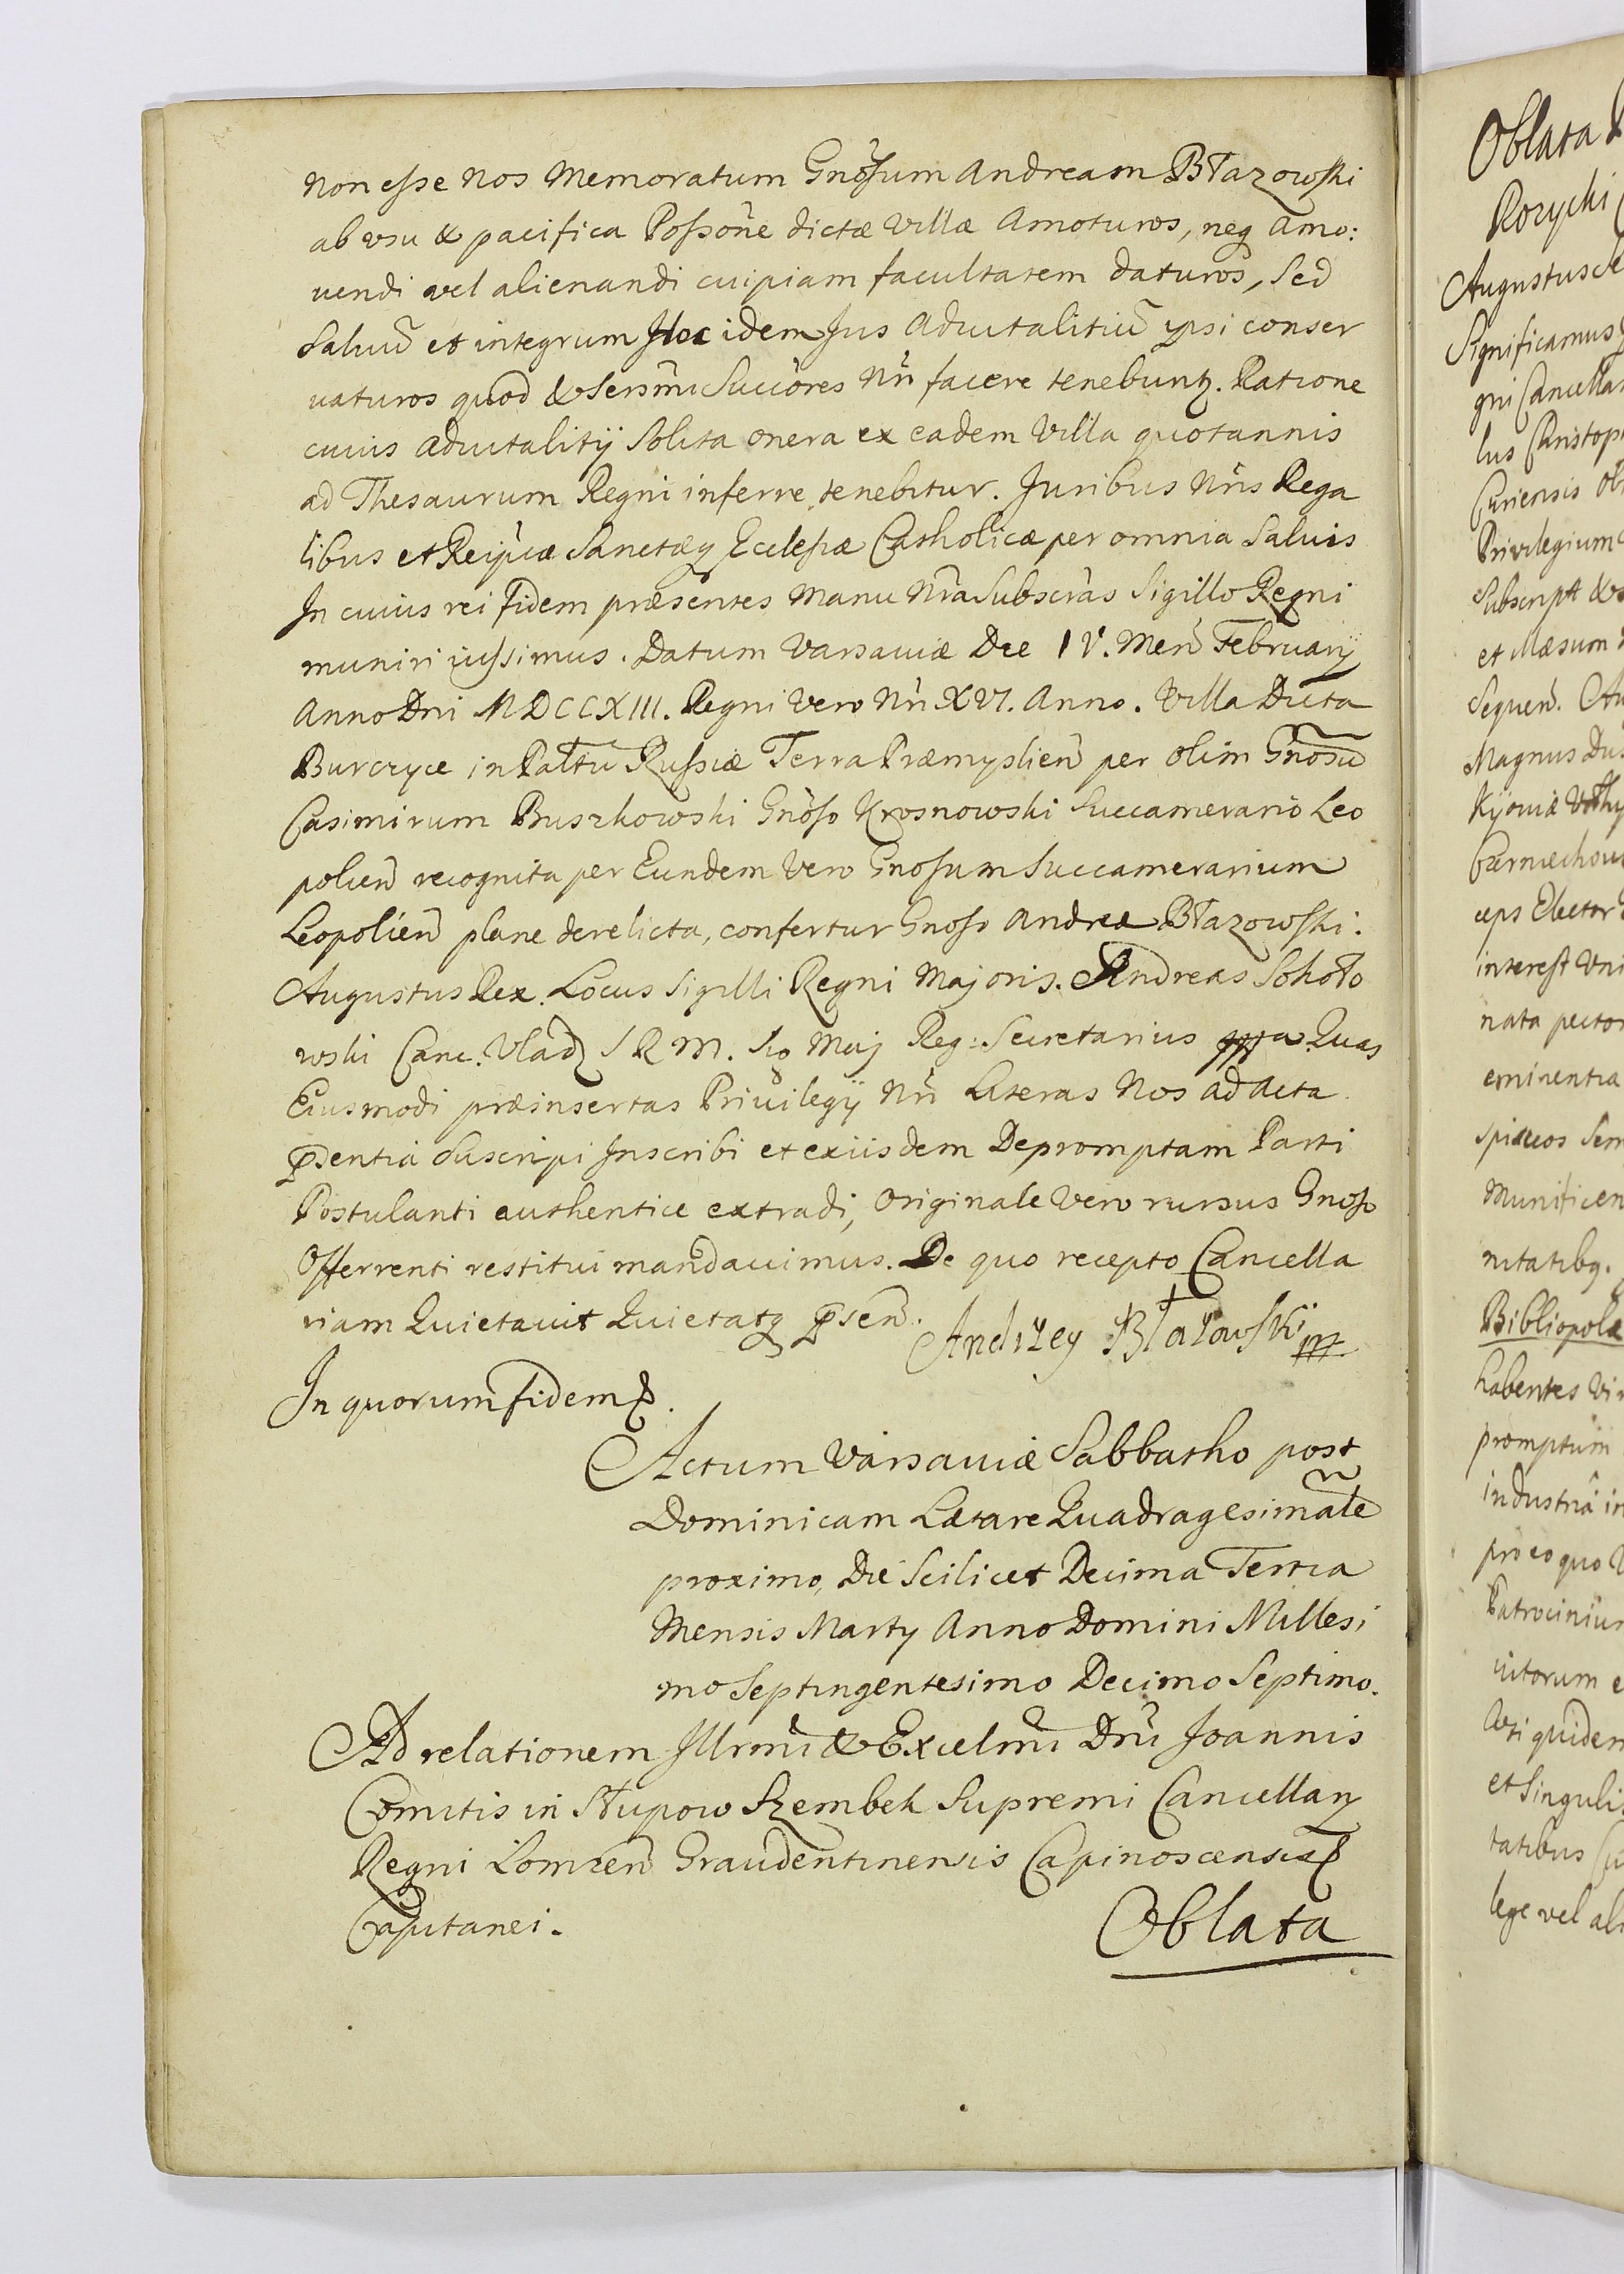 non esse nos memoratum Gnõsum Andream Błazowski
ab usu & pacifica Possõne dictæ Villæ Amoturos, neq Amo:
uendi vel alienandi cuipiam facultatem daturos, sed
saluũ et integrum Hoc idem Jus Aduitalitiũ ipsi conser
uaturos quod & Sersmi Succores Nri facere tenebuntz. Ratione
cuius aduitalitij solita onera ex eadem Villa quotannis
ad Thesaurum Regni inferre tenebitur. Juribus Nris Rega
libus et Reipcæ Sanctæq Ecclesiæ Catholicæ per omnia Saluis
In cuius rei fidem præsentes manu Nra Subscras Sigillo Regni
muniri iussimus. Datum Varsauiæ Die IV. Men Februarij
Anno Dni MDCCXIII. Regni Vero Nri XVI. Anno. Villa Dicta
Burczyce in Pałtu Russiæ Terra Præmyslien per olim Gnosũ
Casimirum Buszkowski Gnoso Krosnowski Succamerario Leo
polien recognita per Eundem Vero Gnosum Succamerarium
Leopolien plane derelicta, confertur Gnoso Andreæ Błazowski:
Augustus Rex. Locus Sigilli Regni Majoris. Andreas Sokoło
wski Canc. Vlad S R M. Sig Maj Reg: Secretarius Quas
Eiusmodi præinsertas Priuilegij Nri Literas Nos ad Acta
pdentia Suscipi Inscribi et exiisdem Depromptam Parti
Postulanti authentice extradi, Originale Vero rursus Gnoso
Offerrenti restitui mandauimus. De quo recepto Cancella
riam Quietauit Quietatq psen. Andrzey Błazowski mp
In quorum fidem &.
Actum Varsauiæ Sabbatho post
Dominicam Lætare Quadragesimãle
proximo, Die Scilicet Decima Tertia
Mensis Martij Anno Domini Millesi
mo Septingentesimo Decimo Septimo.
Ad relationem Illrmi & Excelmi Dni Joannis
Comitis in Słupow Szembek Supremi Cancellarij
Regni Łomzen Graudentinensis Capinoscensis&
Capitanei.
Oblata
Oblata
Rozycki
Augustus
Significamus
gni Cancellar
lus Christop
Curiensis
Privilegium
Subscript
et Mæsum
Sequen.
Magnus Du
Kijoviæ Volhy
Czerniechou
ceps Elector
interest Uni
nata pector
eminentia
Spiceos Sem
munificen
nitatibq.
Bibliopolæ
habentes Vi
promptum
industriâ in
pro eo quo
Patrociniũ
uitorum e
Vti quidem
et Singulis
tatibus
lege vel ali